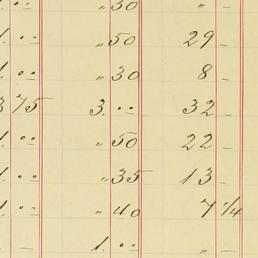 1. " = " 30 " –
1. " = " 50 29 –
1. " = " 30 8 –
3 75 3. " = 32 –
1. " = " 50 22 –
1. " = " 35 13 –
1. " = " 40 7 1/4
– 1. " = " –